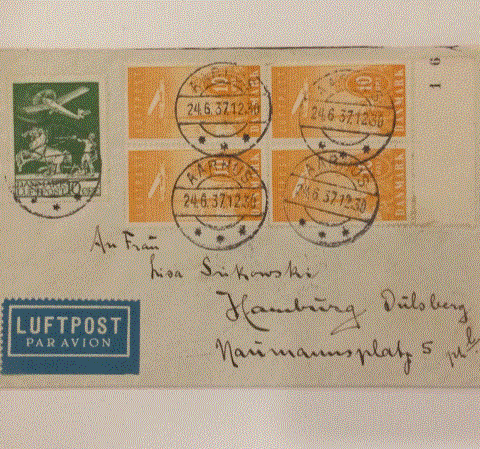 16
24.6.37.12.30
24.6.37.12.30
AARHUS
24.6.37.12.30
AARHUS
24.6.37.12.30
10
DANMARK
An Frau
Lisa Sukowski
Hamburg Dulsberg
Naumannsplatz 5
LUFTPOST
PAR AVION